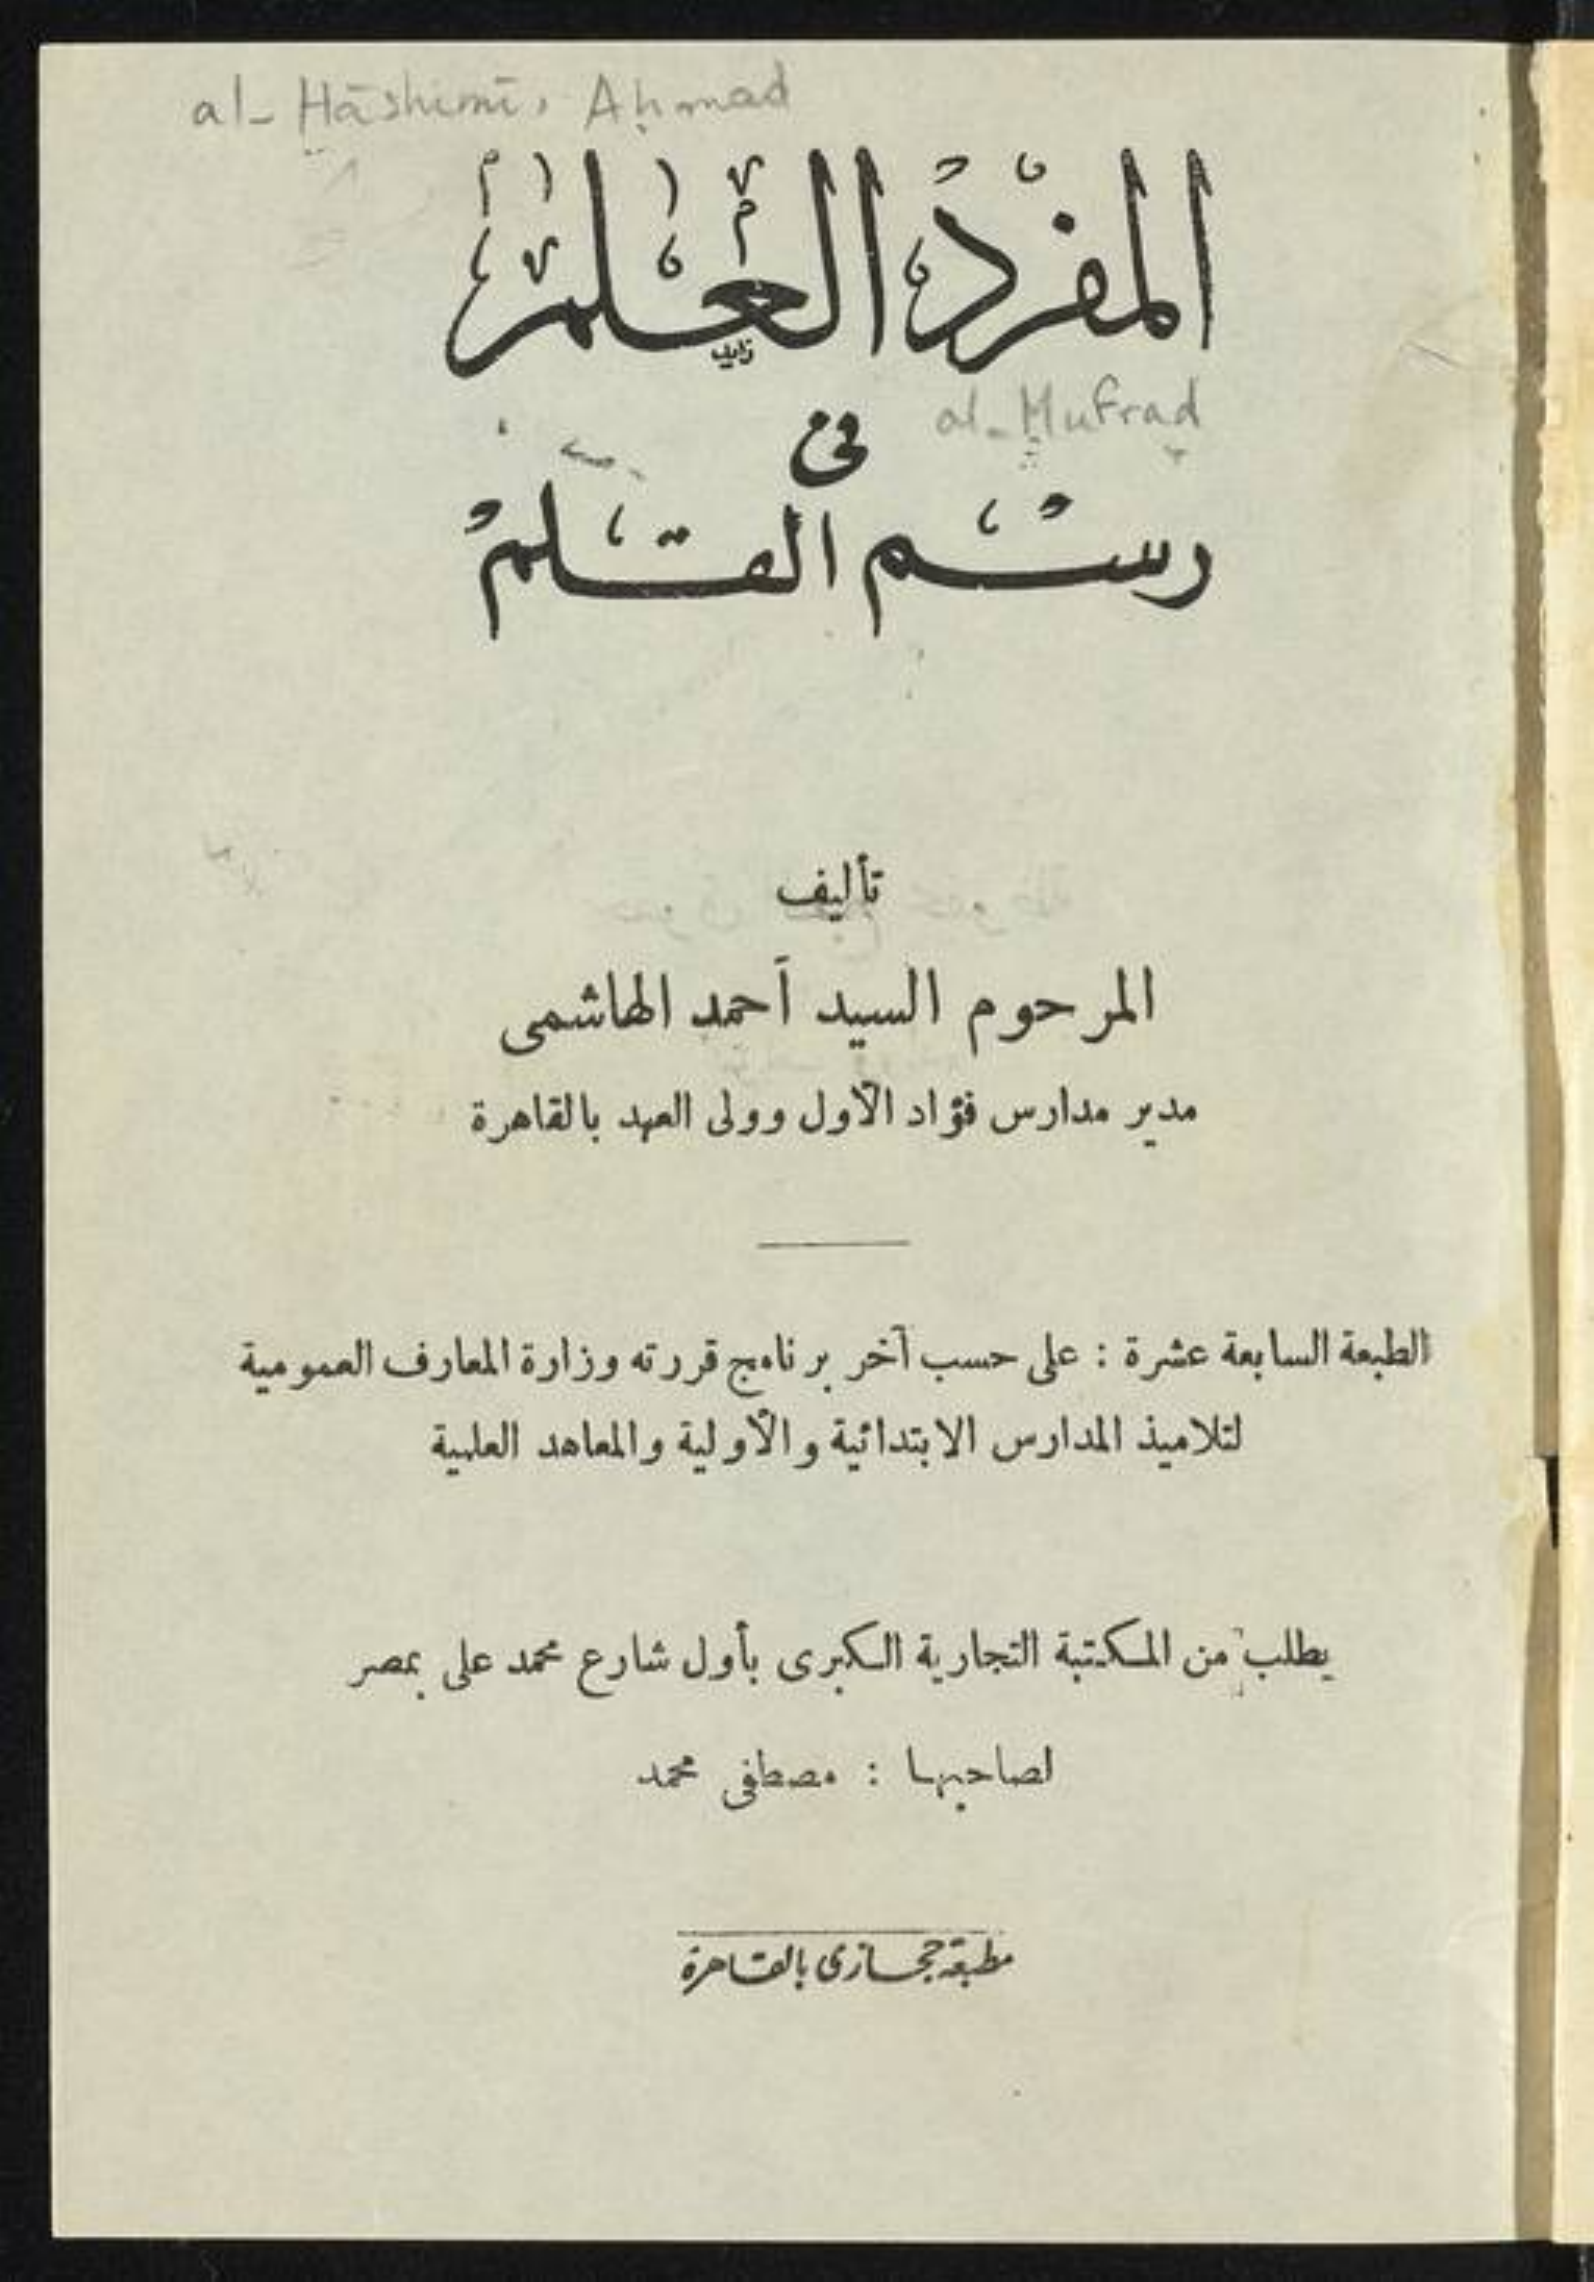 al-Hāshimī, Aḥmad
المفرد العلم
زايد
فى
al-Mufrad
رسم القلم
تأليف
المرحوم السيد أحمد الهاشمى
مدير مدارس فؤاد الأول وولى العهد بالقاهرة
الطبعة السابعة عشرة : على حسب آخر برنامج قررته وزارة المعارف العمومية
لتلاميذ المدارس الابتدائية والأولية والمعاهد العلمية
يطلب من المكتبة التجارية الكبرى بأول شارع محمد على بمصر
لصاحبها : مصطفى محمد
مطبعة حجازى بالقاهرة